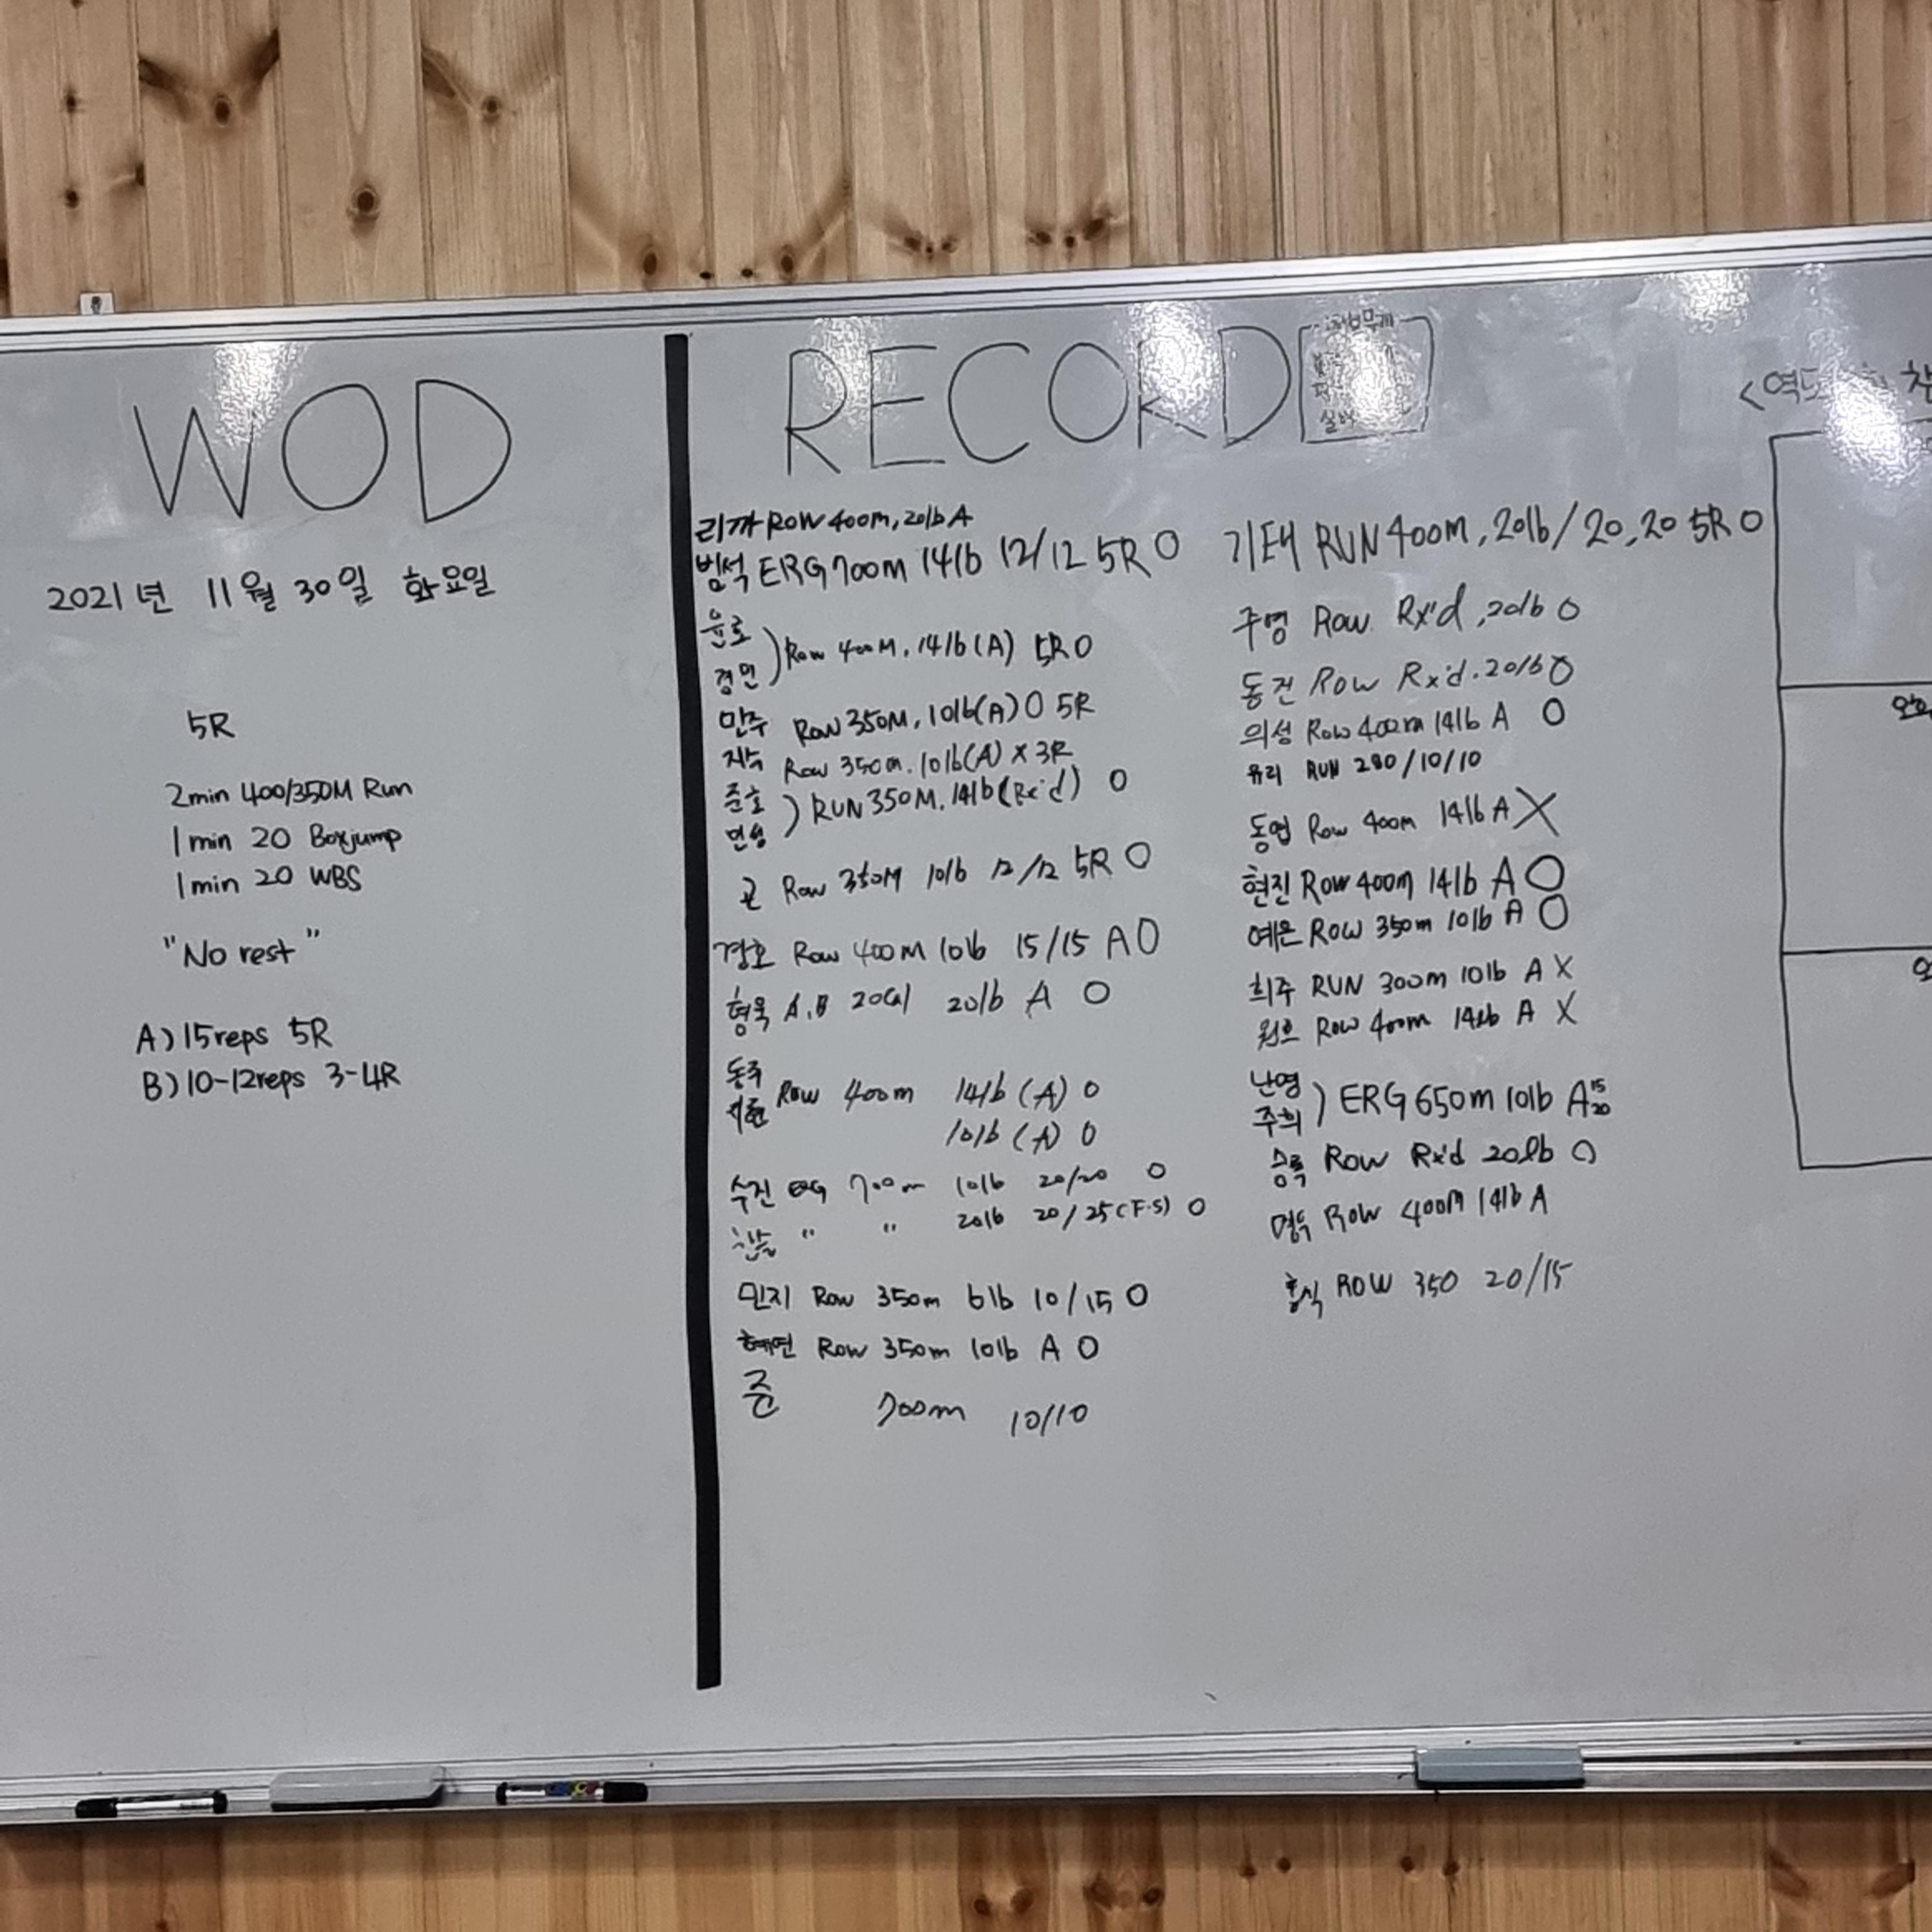 WOD
2021년 11월 30일 화요일
5R
2min 400/350M Run
1min 20 Boxjump
1min 20 WBS
"No rest"
A) 15reps 5R
B) 10-12reps 3-4R
RECORD
리까 ROW 400m, 20lb A
범석 ERG 700m 14lb 12/12 5R O
윤로
경민
) Row 400M, 14lb (A) 5R O
민주 Row 350M, 10lb(A) O 5R
지수 Row 350m. 10lb(A) X 3R
준호
민성
) RUN 350M, 14lb (Rx'd) O
곤 Row 350M 10lb 12/12 5R O
경호 Row 400M 10lb 15/15 A O
형욱 A.B 20Cal 20lb A O
동주
Row 400m 14lb (A) O
10lb (A) O
수진 ERG 700m 10lb 20/20 O
" " 20lb 20/25 (F.S) O
민지 Row 350m 6lb 10/15 O
혜연 Row 350m 10lb A O
준 700m 10/10
기태 RUN 400m, 20lb/20,20 5R O
주영 Row Rx'd, 20lb O
동건 Row Rx'd. 20lb O
의성 Row 400m 14lb A O
유리 RUN 280/10/10
동엽 Row 400m 14lb A X
현진 Row 400m 14lb A O
예은 Row 350m 10lb A O
희주 RUN 300m 10lb A X
Row 400m 14lb A X
난영
주희
) ERG 650m 10lb A 15 20
승록 Row Rx'd 20lb O
명수 Row 400M 14lb A
홍식 ROW 350 20/15
<역도